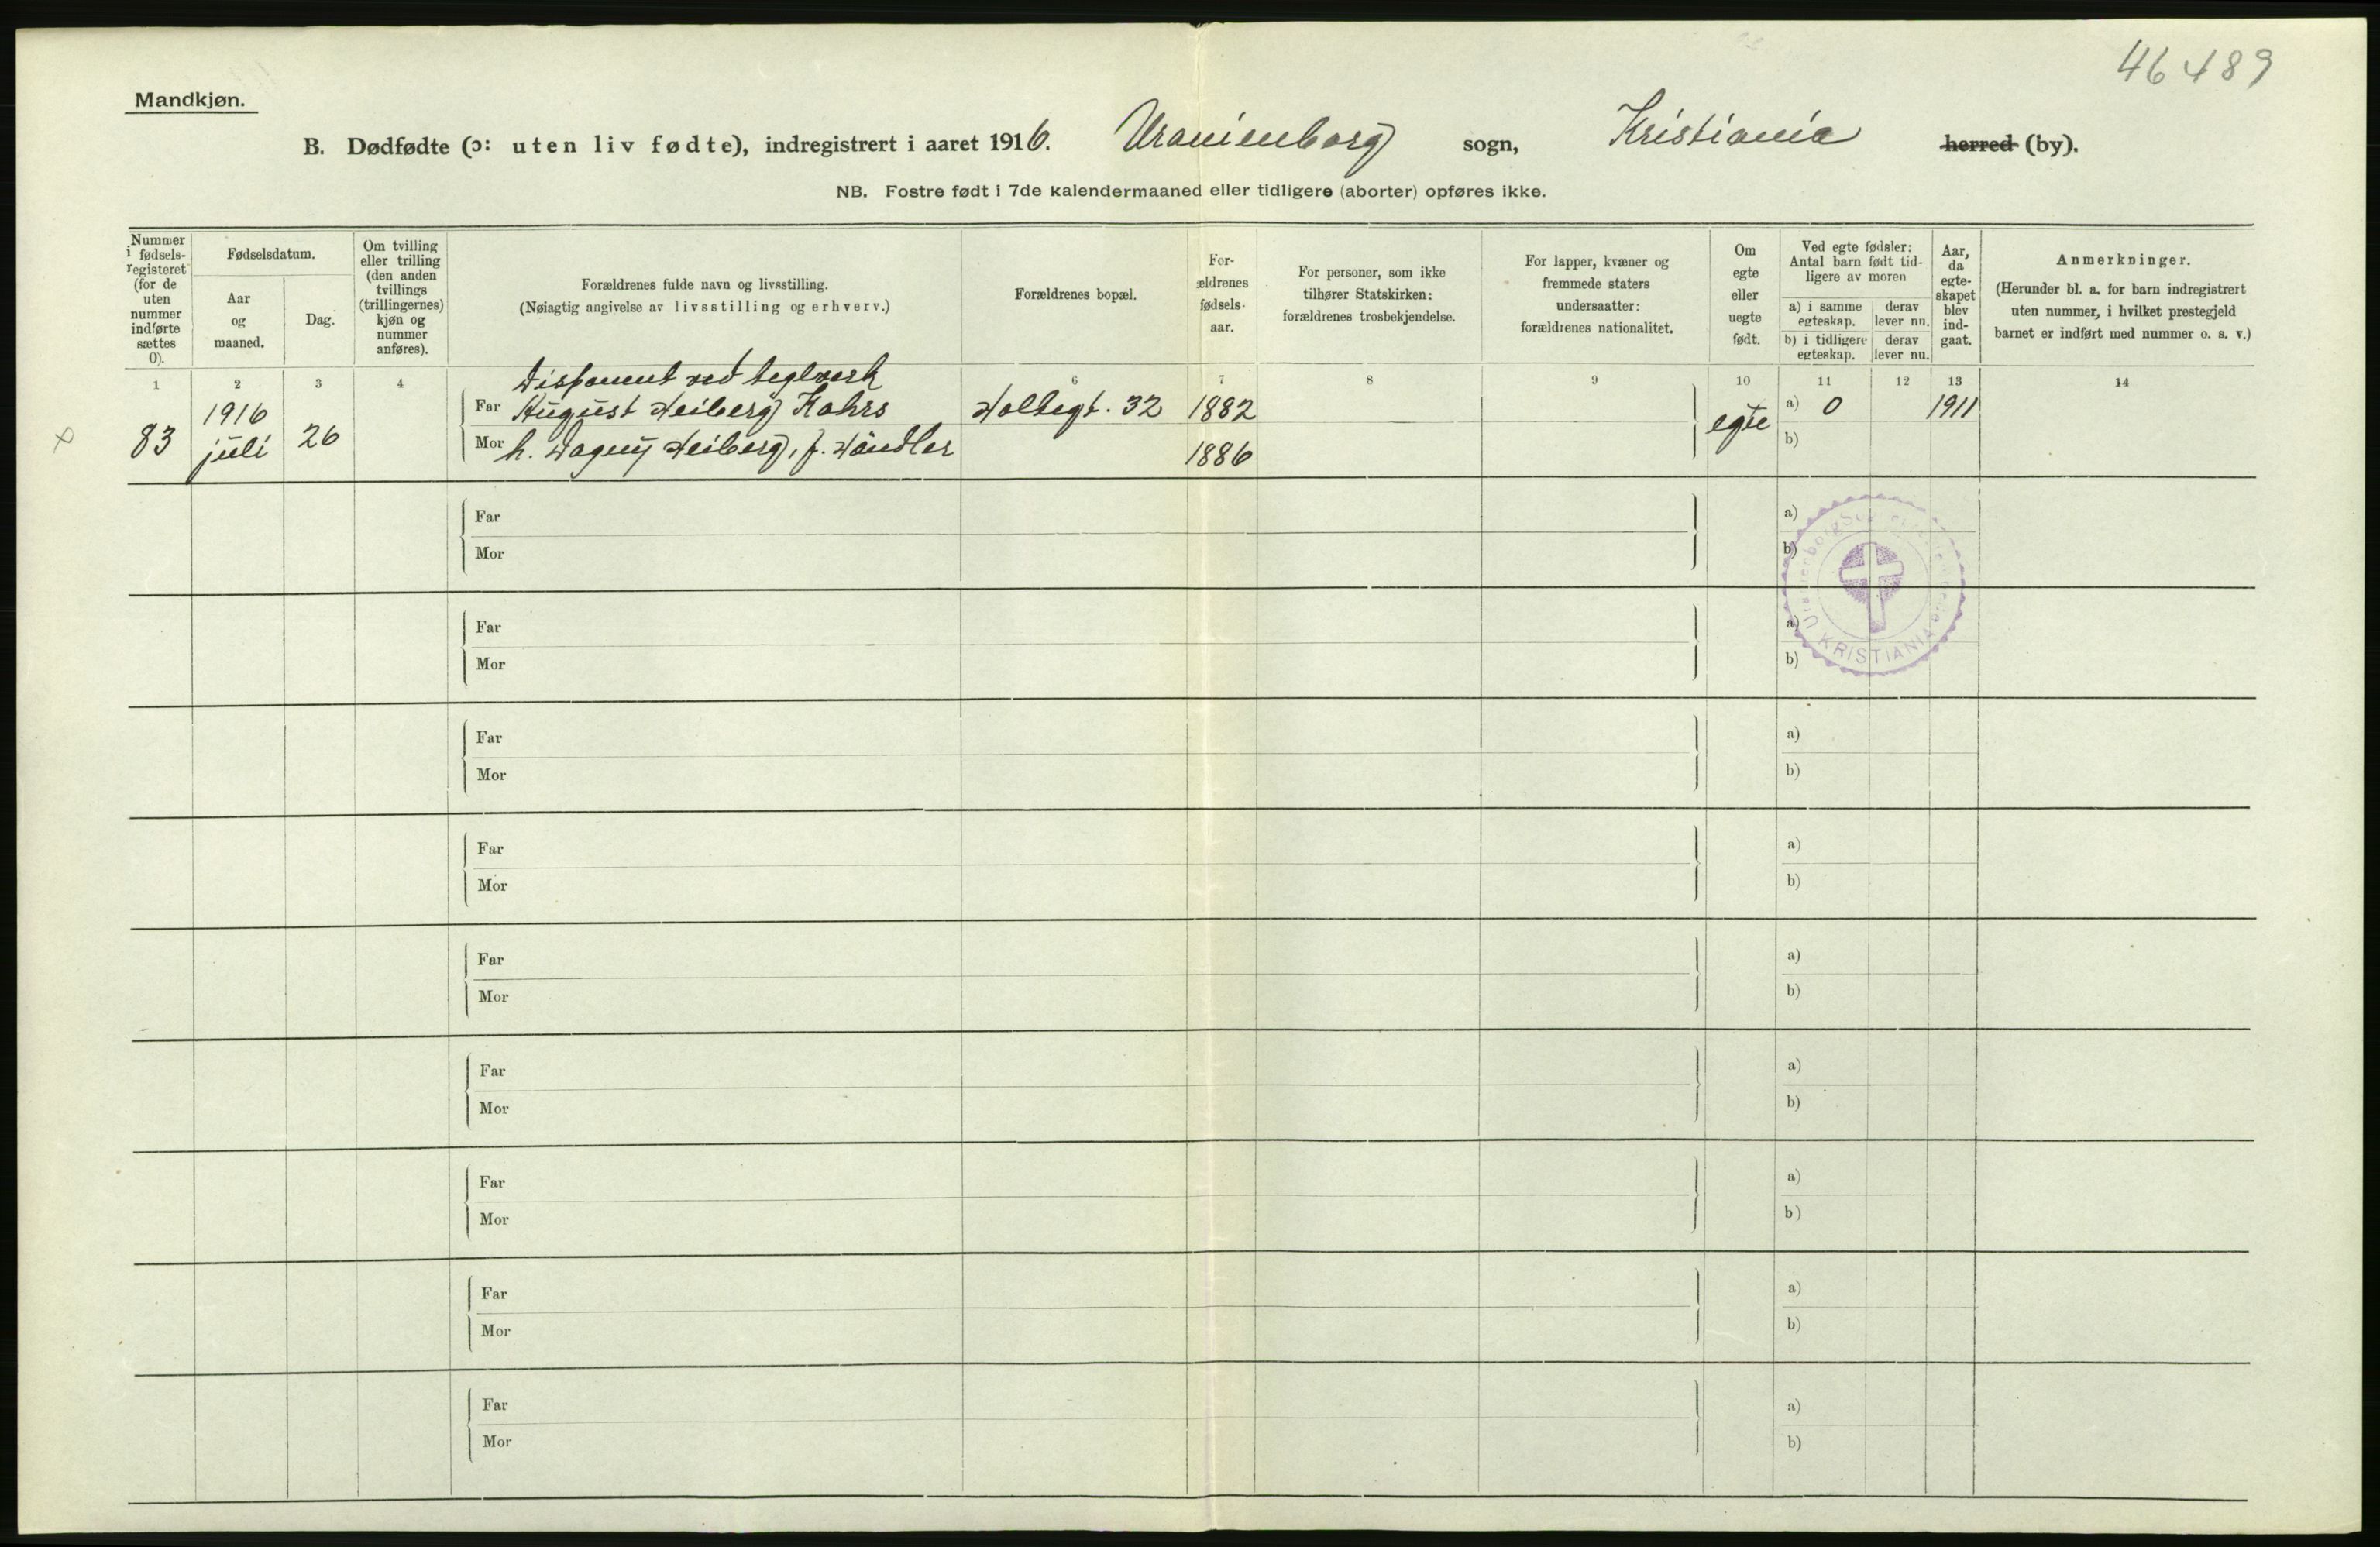 46 489
Mandkjøn.
B. Dødfødte (ɔ: uten liv fødte), indregistrert i aaret 1916. Uranienborg sogn, Kristiania herred (by).
NB. Fostre født i 7de kalendermaaned eller tidligere (aborter) opføres ikke.
Nummer
i fødsels-
registeret
(for de
uten
nummer
indførte
sættes
0).
Fødselsdatum.
Aar
og
maaned.
Dag.
Om tvilling
eller trilling
(den anden
tvillings
(trillingernes)
kjøn og
nummer
anføres).
Forældrenes fulde navn og livsstilling.
(Nøiagtig angivelse av livsstilling og erhverv.)
Forældrenes bopæl.
For-
ældrenes
fødsels-
aar.
For personer, som ikke
tilhører Statskirken:
forældrenes trosbekjendelse.
For lapper, kvæner og
fremmede staters
undersaatter:
forældrenes nationalitet.
Om
egte
eller
uegte
født.
Ved egte fødsler:
Antal barn født tid-
ligere av moren
a) i samme
egteskap.
derav
lever nu.
b) i tidligere
egteskap.
derav
lever nu.
Aar,
da
egte-
skapet
blev
ind-
gaat.
Anmerkninger.
(Herunder bl. a. for barn indregistrert
uten nummer, i hvilket prestegjeld
barnet er indført med nummer o. s. v.)
1 2 3 4 6 7 8 9 10 11 12 13 14
Disponent ved teglverk
83 1916 juli 26
Far August Heiberg Kahrs Holtegt. 32 1882 egte a) 0 1911
Mor h. Dagny Heiberg, f. Händler 1886 b)
Far a)
Mor b)
Far a)
Mor b)
KRISTIANIA
Far a)
Mor b)
Far a)
Mor b)
Far a)
Mor b)
Far a)
Mor b)
Far a)
Mor b)
Far a)
Mor b)
Far a)
Mor b)